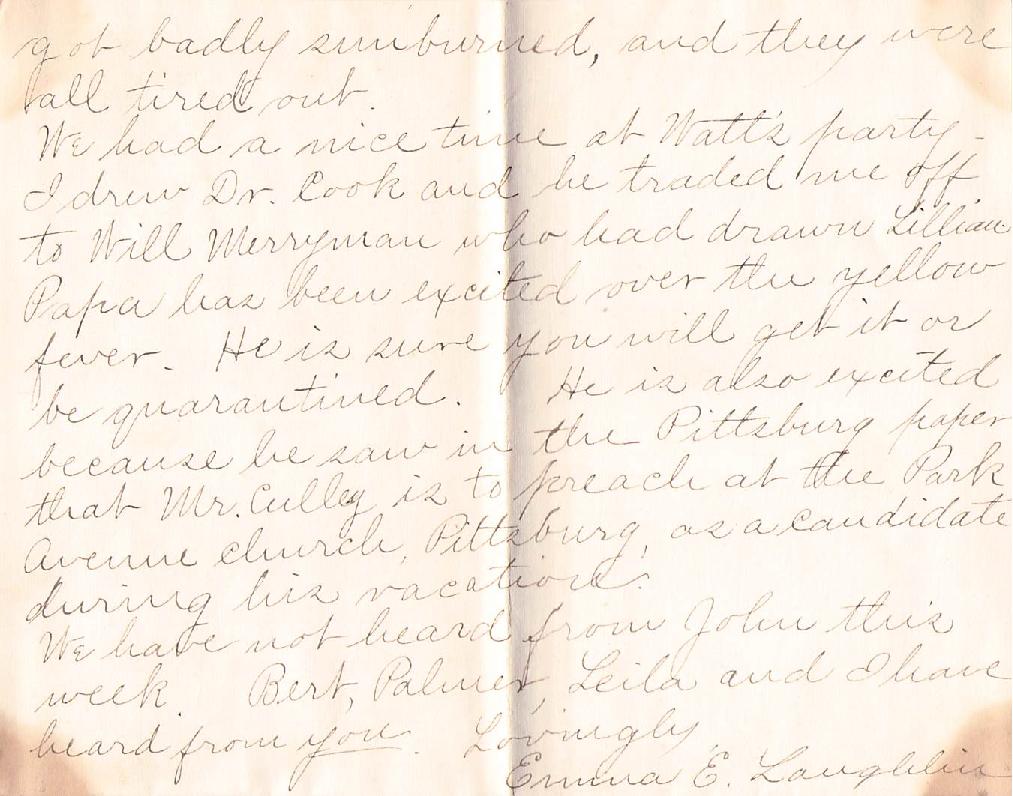 got badly sunburned, and they were
all tired out.
We had a nice time at Watt's party -
I drew Dr. Cook and he traded me off
to Will Merryman who had drawn Lillian
Papa has been excited over the yellow
fever. He is sure you will get it or
be quarantined. He is also excited
because he saw in the Pittsburg paper
that Mr. Culley is to preach at the Park
Avenue church, Pittsburg, as a candidate
during his vacation.
We have not heard from John this
week. Bert, Palmer, Leila and I have
heard from you. Lovingly,
Emma E. Laughlin